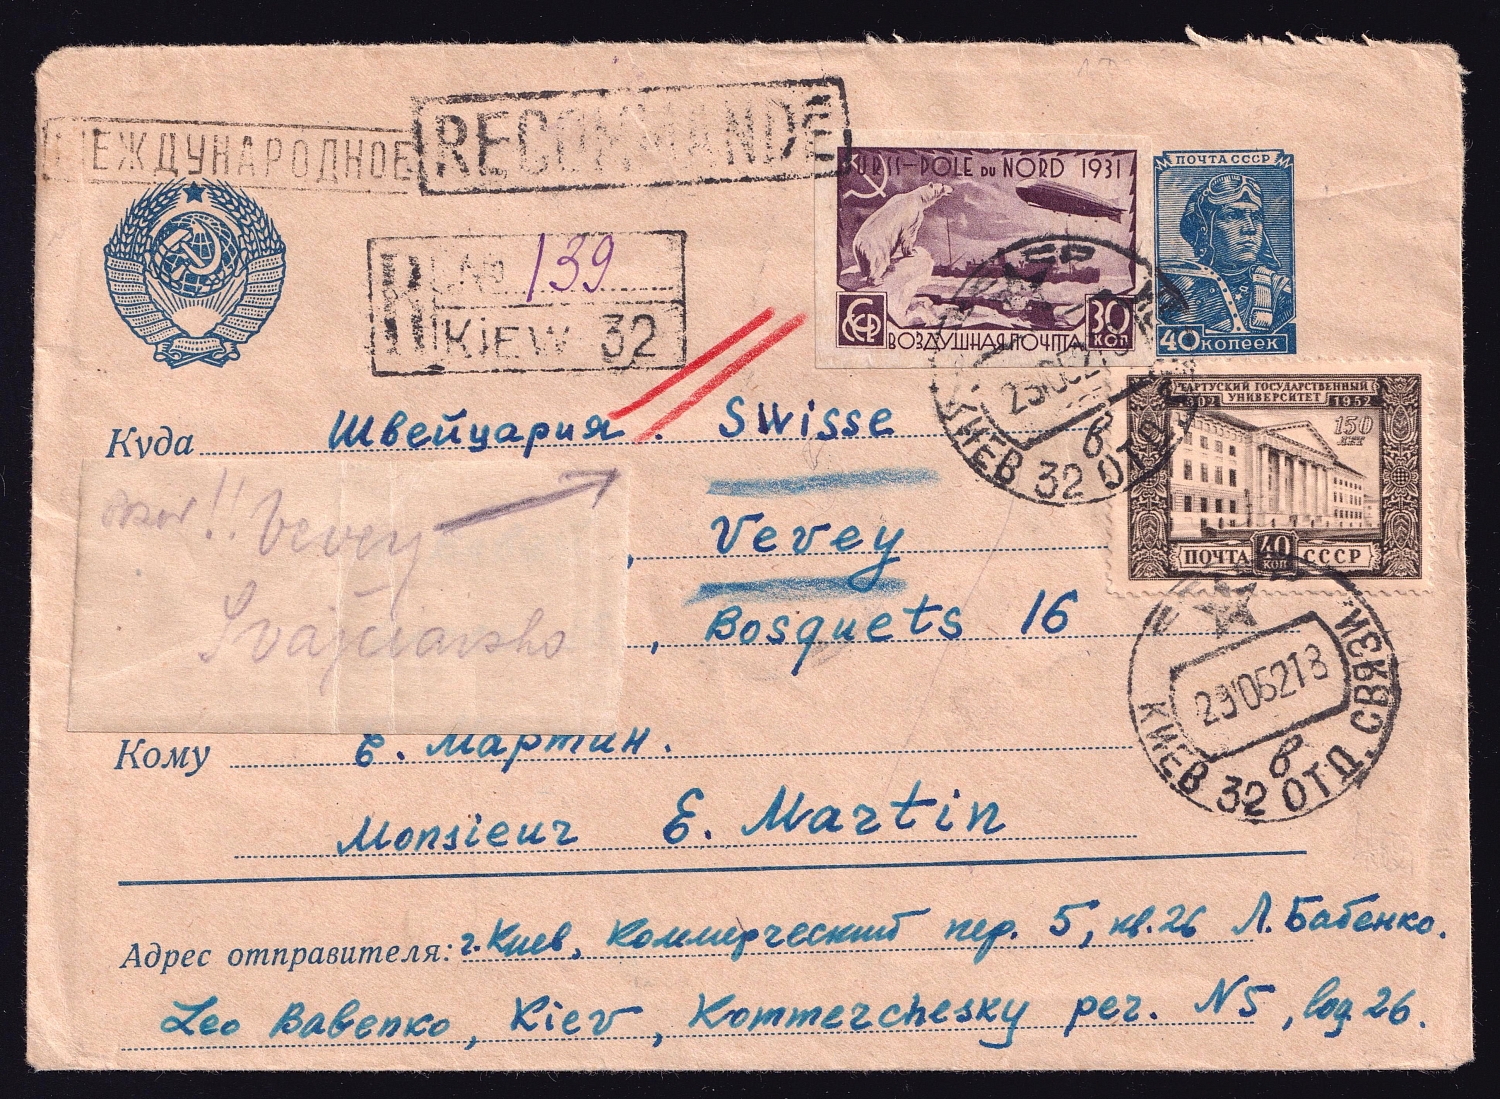 МЕЖДУНАРОДНОЕ
RECOMMANDÉ
R
No 139
KiEW 32
URSS–POLE DU NORD 1931
30
КОП
ВОЗДУШНАЯ ПОЧТА
ПОЧТА СССР
40 копеек
ТАРТУСКИЙ ГОСУДАРСТВЕННЫЙ
1802 УНИВЕРСИТЕТ 1952
150
ЛЕТ
ПОЧТА 40 КОП СССР
КИЕВ 32 ОТД.
в
2905218
КИЕВ 32 ОТД. СВЯЗИ
в
Куда Швейцария. Swisse
!! Vevey
Vevey
Bosquets 16
Кому Е. Мартин.
Monsieur E. Martin
Адрес отправителя: г. Киев, Коммерческий пер. 5, кв. 26 Л. Бабенко.
Leo Babenko, Kiev, Kommerchesky per. N5, log. 26.